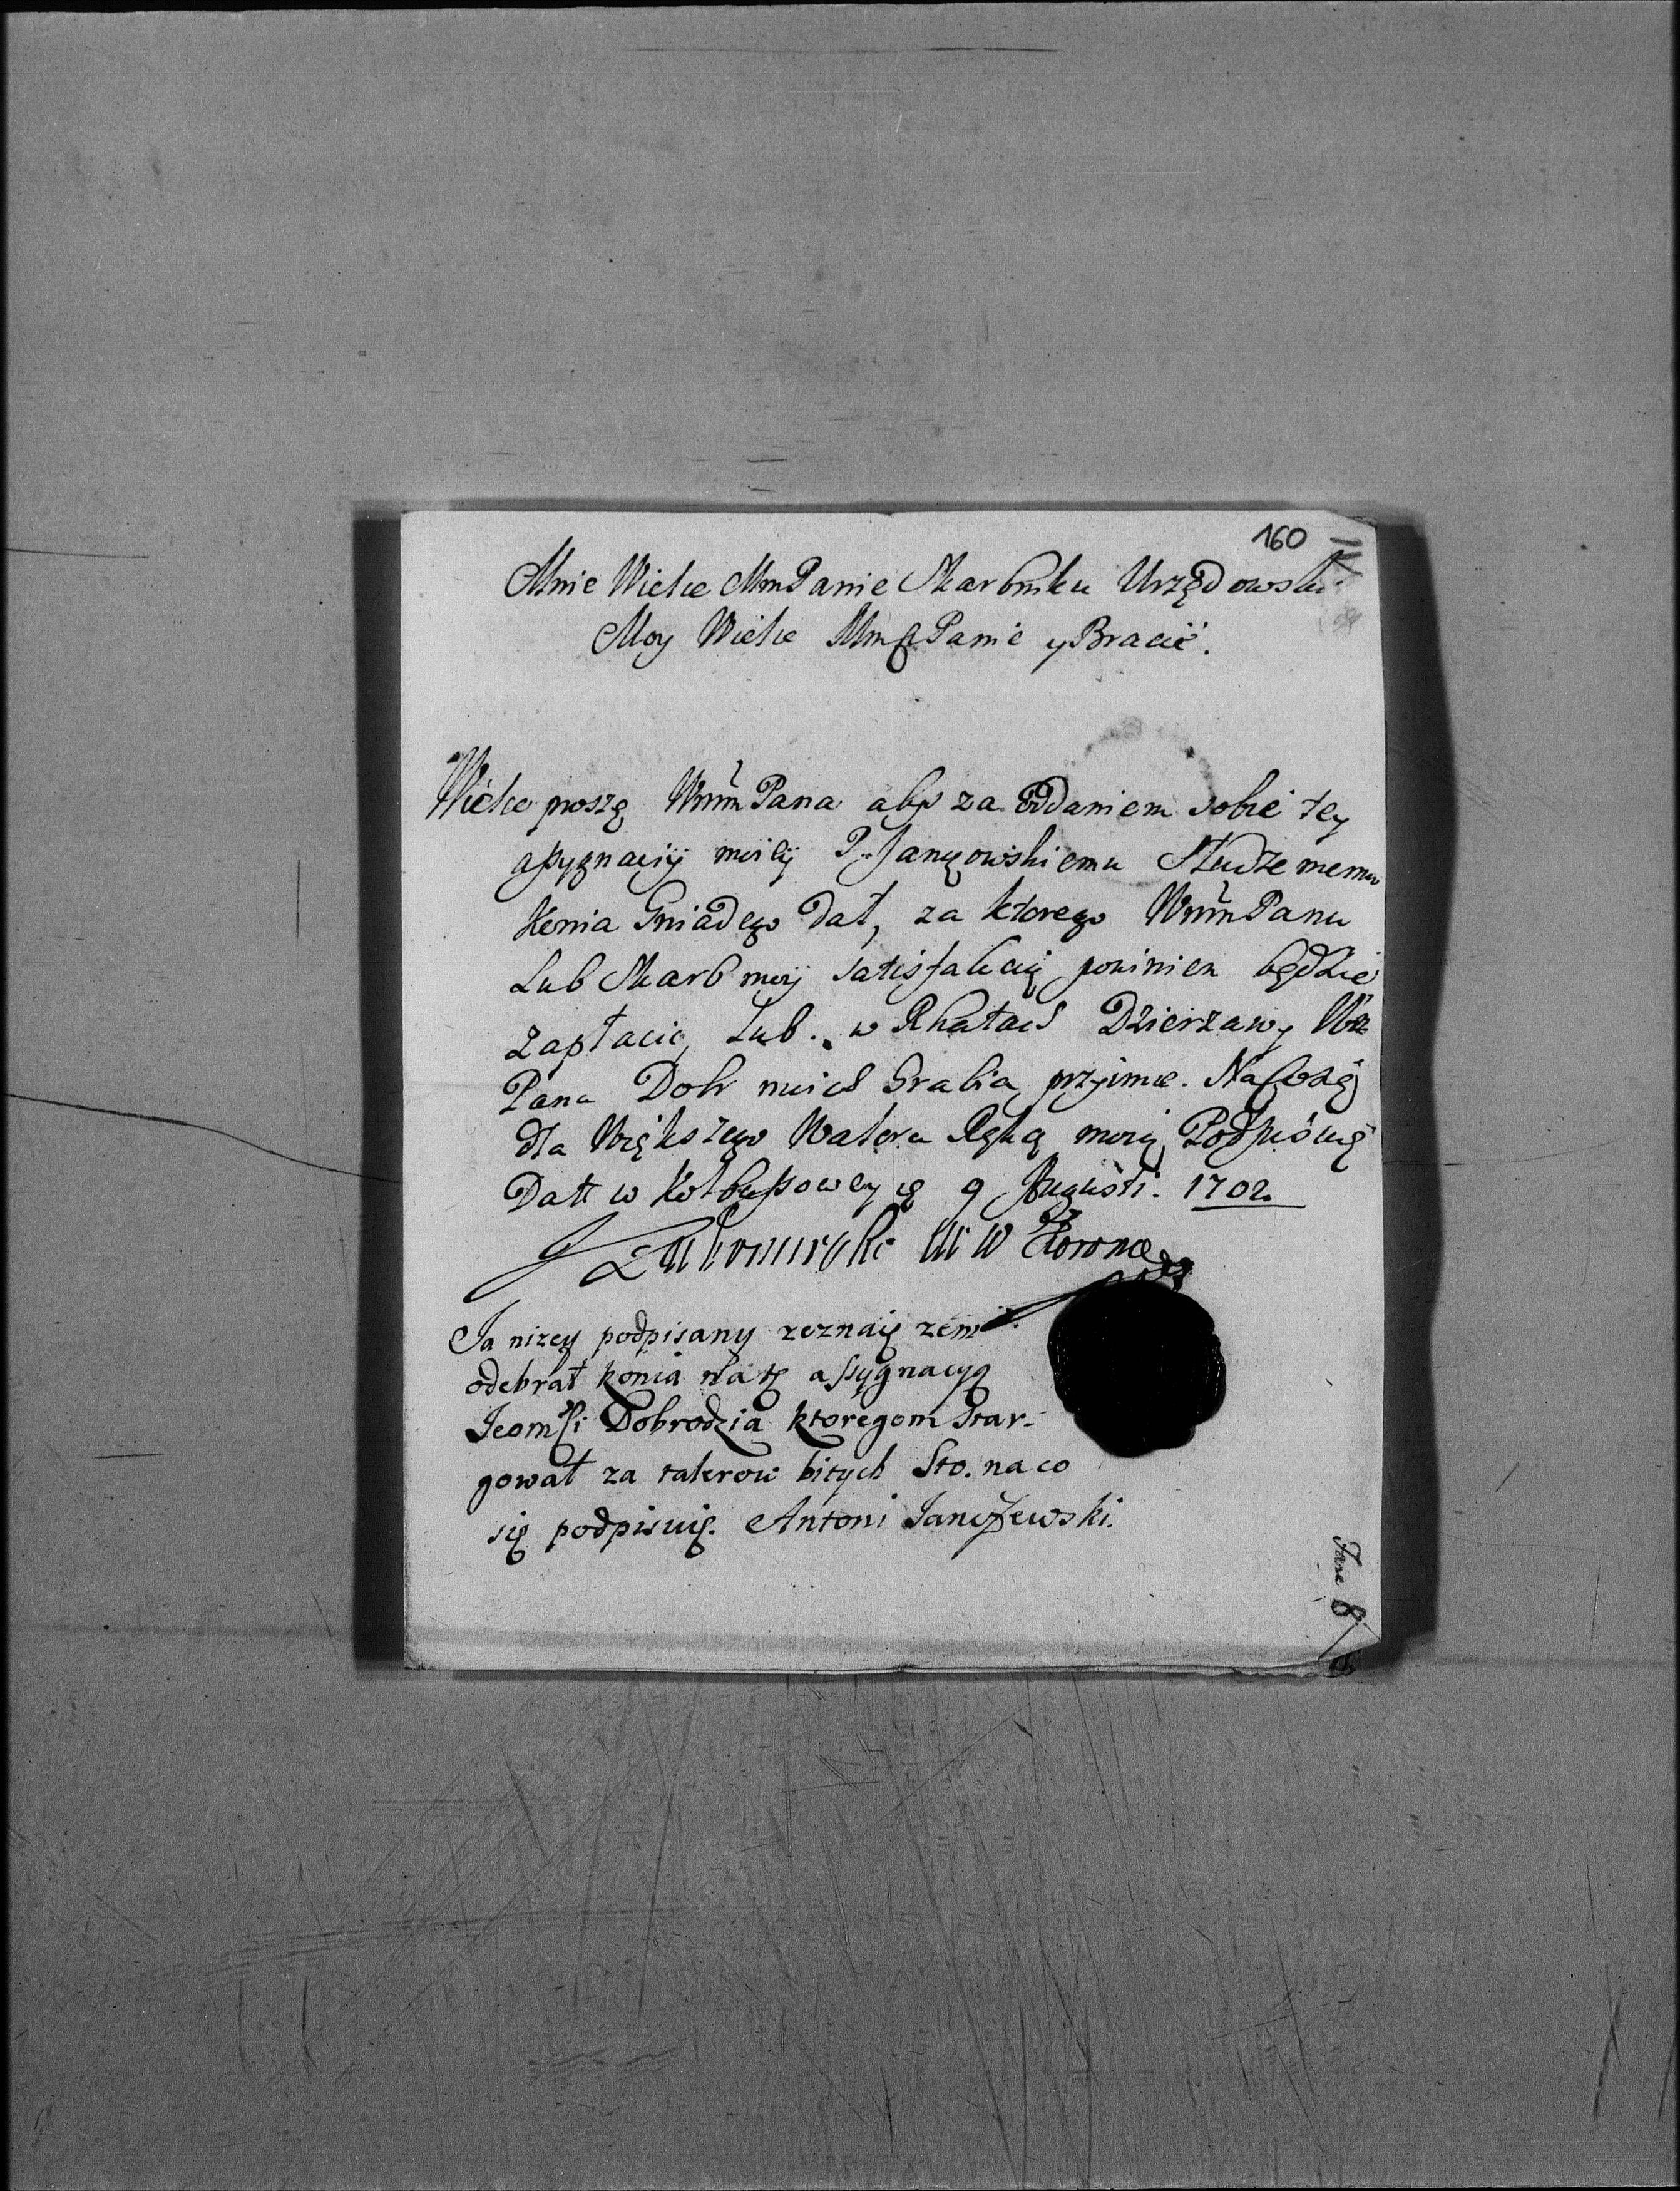 160
Mnie Wielce MmPanie Skarbniku Urzędowski
Moy Wielce MmPanie y Bracie.
Wielce proszę WmmPana aby za oddaniem sobie tey
assygnacyi moiey P. Janczowskiemu Słudze memu
Konia Gniadego dał, za ktorego WmmPanu
Lub Skarb moy satisfakcią powinien będzie
zapłacić, Lub w Rhatach Dzierzawy Wm
Pana Dobr moich Grabia przyimie. Na cosię
dla Większego Waloru Ręką moią Podpisuię
Datt w Kolbuszowey 9 Augusti. 1702
J Lubomirski M W Koronny
Ja nizey podpisany zeznaię zem
odebrał konia na tę assygnacyą
Jeomści Dobrodzia ktoregom star-
gował za talerow bitych Sto. na co
się podpisuię. Antoni Janczewski.